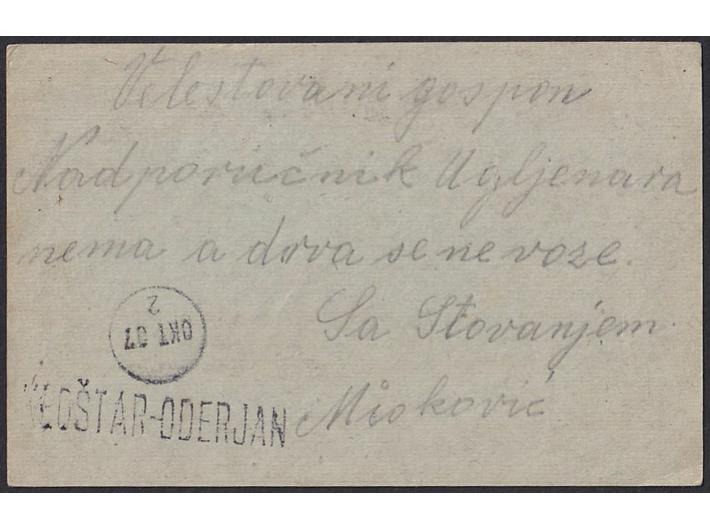 Velestovani gospon
Nadporučnik Ugljenara
nema a drva se ne voze.
Sa Stovanjem
OKT 07
2
OŠTAR-ODERJAN